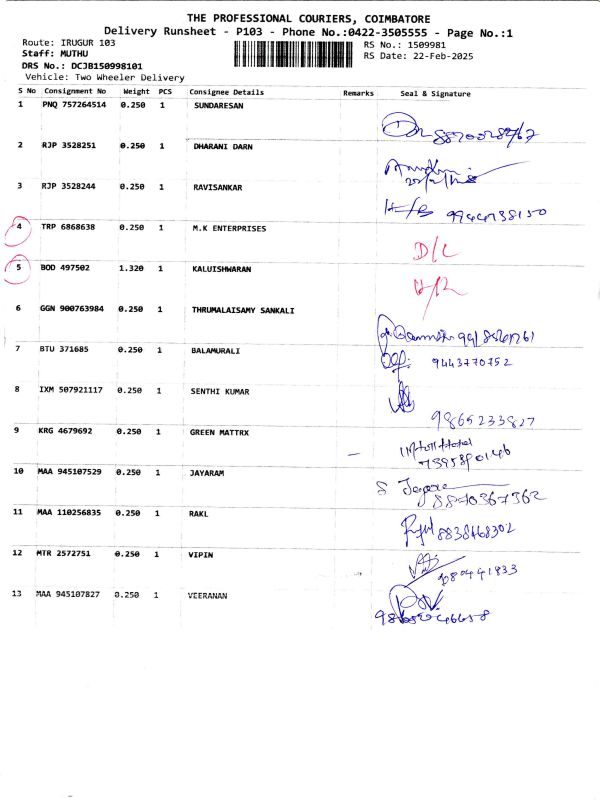 THE PROFESSIONAL COURIERS, COIMBATORE
Delivery Runsheet - P103 - Phone No.:0422-3505555 - Page No.:1
Route: IRUGUR 103 RS No.: 1509981
Staff: MUTHU RS Date: 22-Feb-2025
DRS No.: DCJB150998101
Vehicle: Two Wheeler Delivery
S No Consignment No Weight PCS Consignee Details Remarks Seal & Signature
1 PNQ 757264514 0.250 1 SUNDARESAN
2 RJP 3528251 0.250 1 DHARANI DARN
3 RJP 3528244 0.250 1 RAVISANKAR
H/B 9944738150
4 TRP 6868638 0.250 1 M.K ENTERPRISES
D/L
5 BOD 497502 1.320 1 KALUISHWARAN
6 GGN 900763984 0.250 1 THRUMALAISAMY SANKALI
7 BTU 371685 0.250 1 BALAMURALI
9443770752
8 IXM 507921117 0.250 1 SENTHI KUMAR
9865233827
9 KRG 4679692 0.250 1 GREEN MATTRX
10 MAA 945107529 0.250 1 JAYARAM
8870367362
11 MAA 110256835 0.250 1 RAKL
8838468302
12 MTR 2572751 0.250 1 VIPIN
13 MAA 945107827 0.250 1 VEERANAN